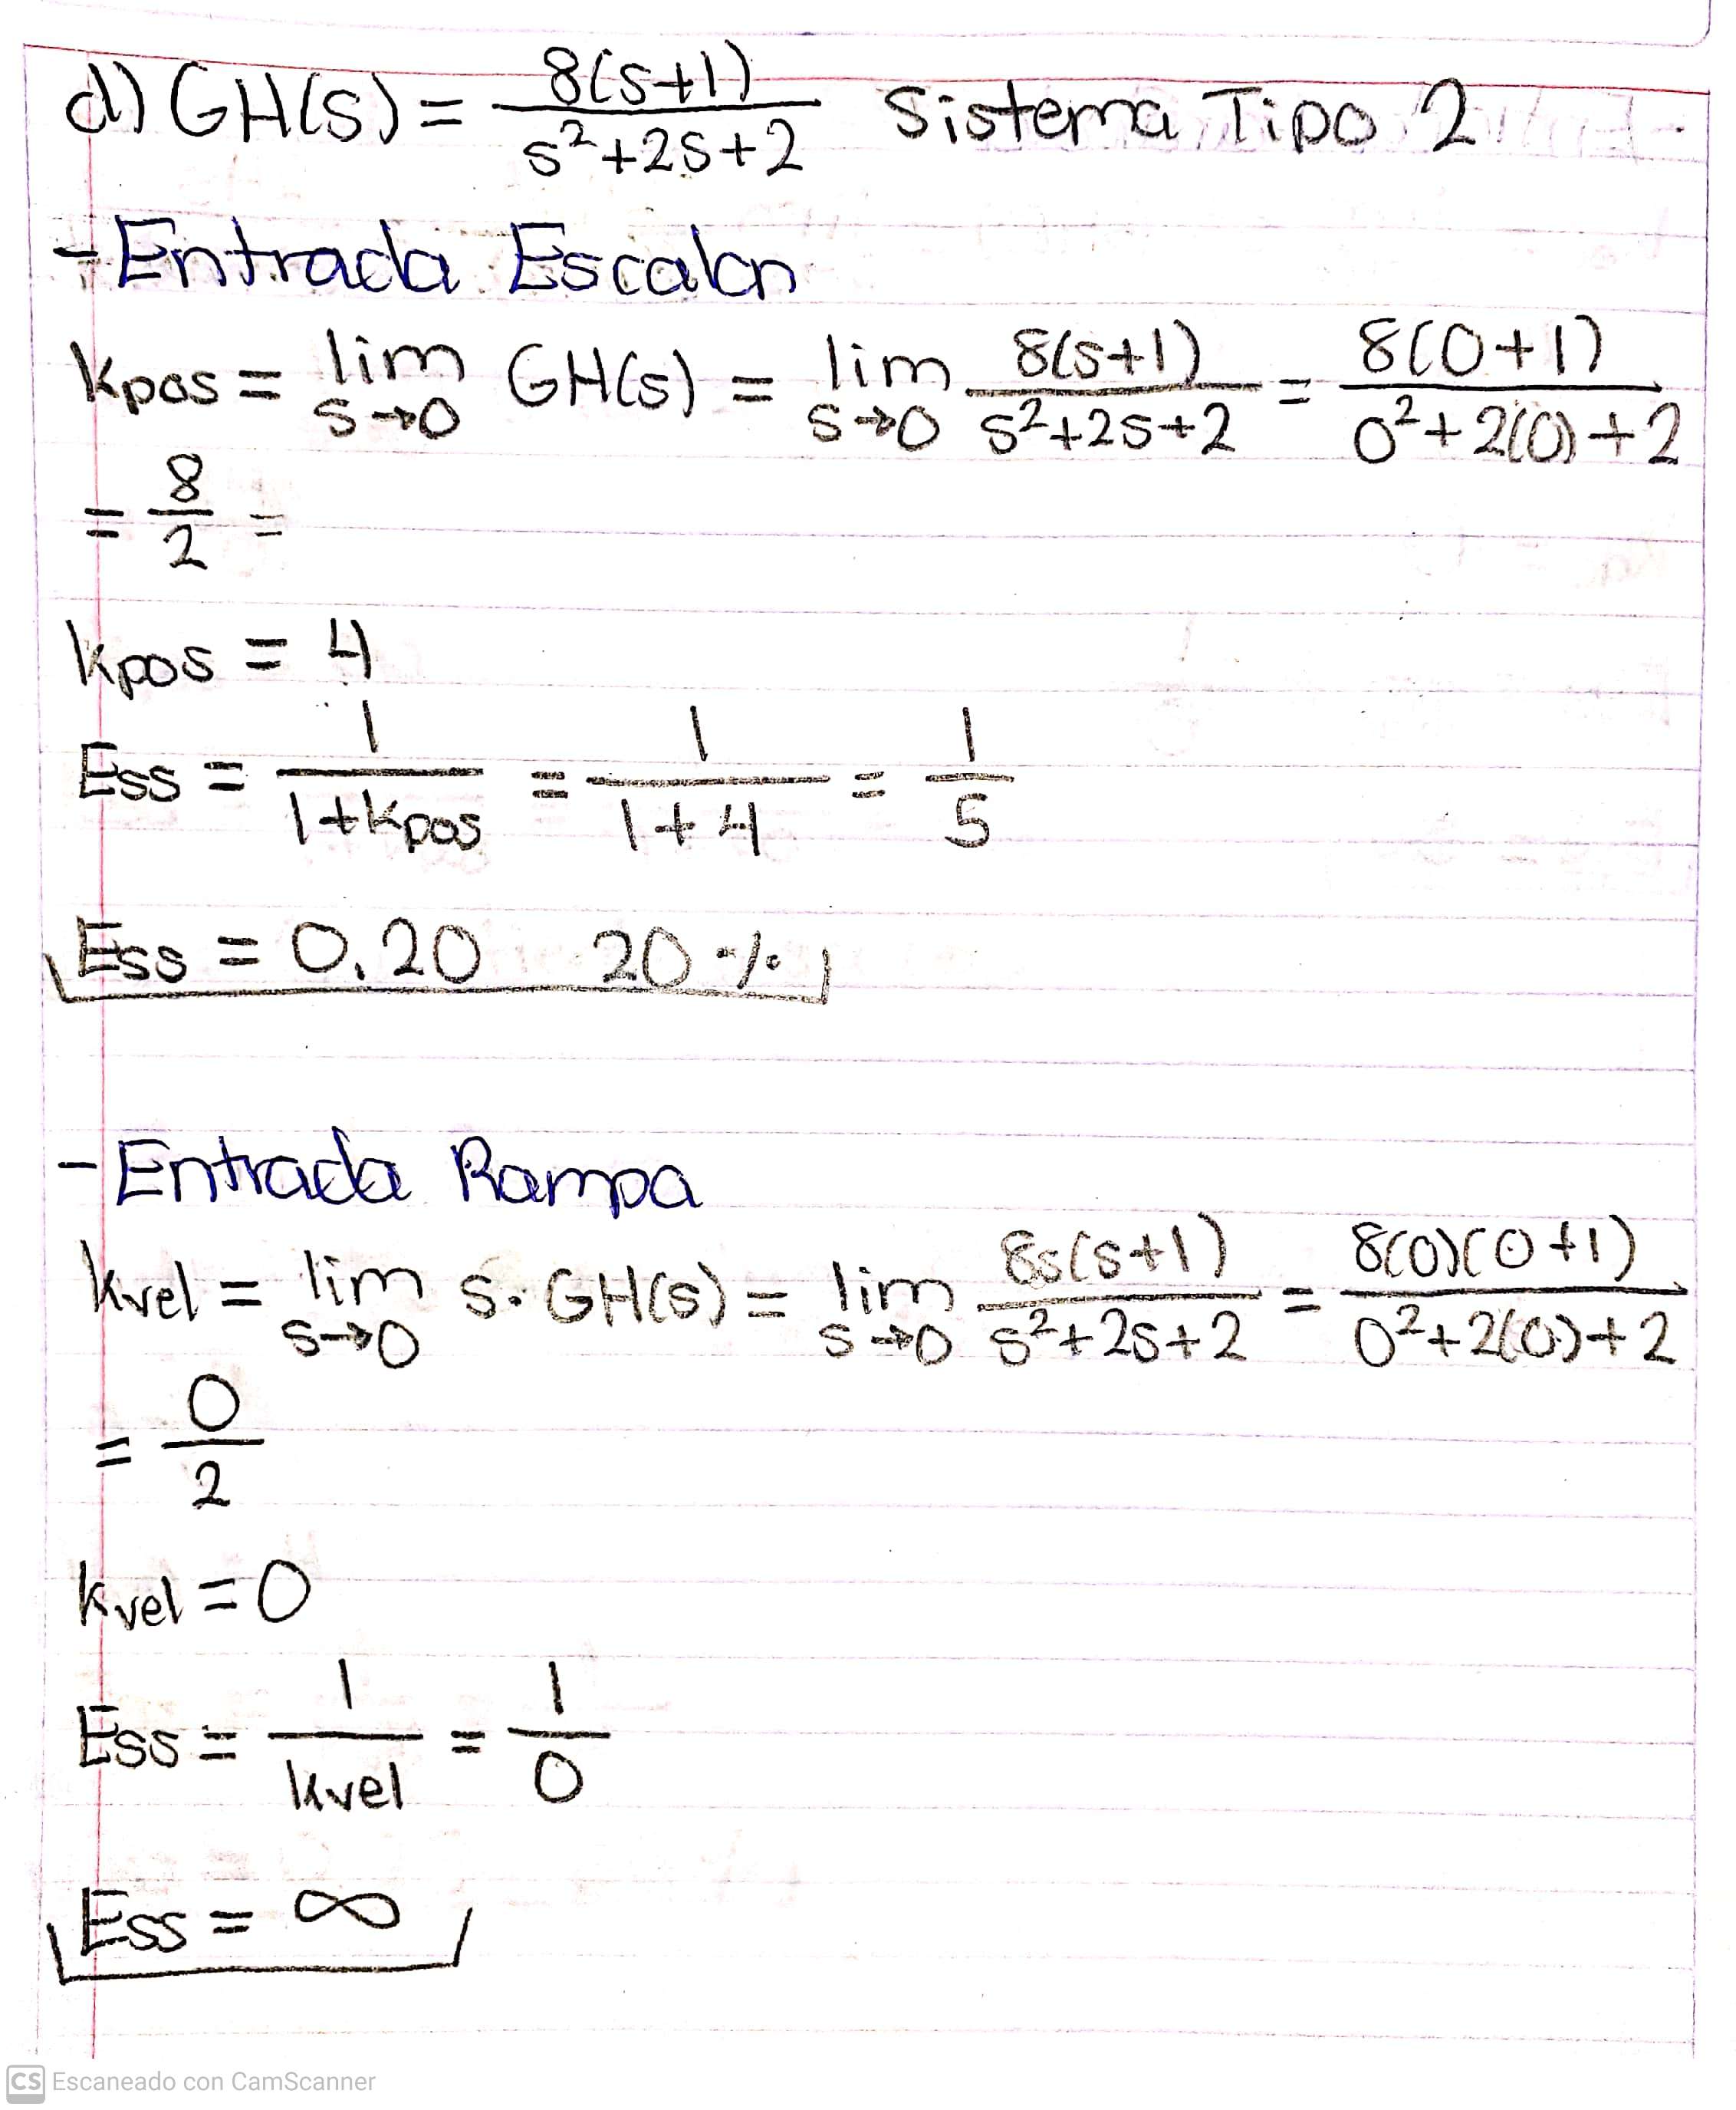 d) GH(s) = 8(s+1) / s²+2s+2 Sistema Tipo 2
- Entrada Escalon
Kpos = lim s→0 GH(s) = lim s→0 8(s+1) / s²+2s+2 = 8(0+1) / 0²+2(0)+2
= 8/2 =
Kpos = 4
Ess = 1 / 1+Kpos = 1 / 1+4 = 1/5
Ess = 0.20 20%
- Entrada Rampa
Kvel = lim s→0 s·GH(s) = lim s→0 8s(s+1) / s²+2s+2 = 8(0)(0+1) / 0²+2(0)+2
= 0/2
Kvel = 0
Ess = 1 / Kvel = 1/0
Ess = ∞
CS Escaneado con CamScanner